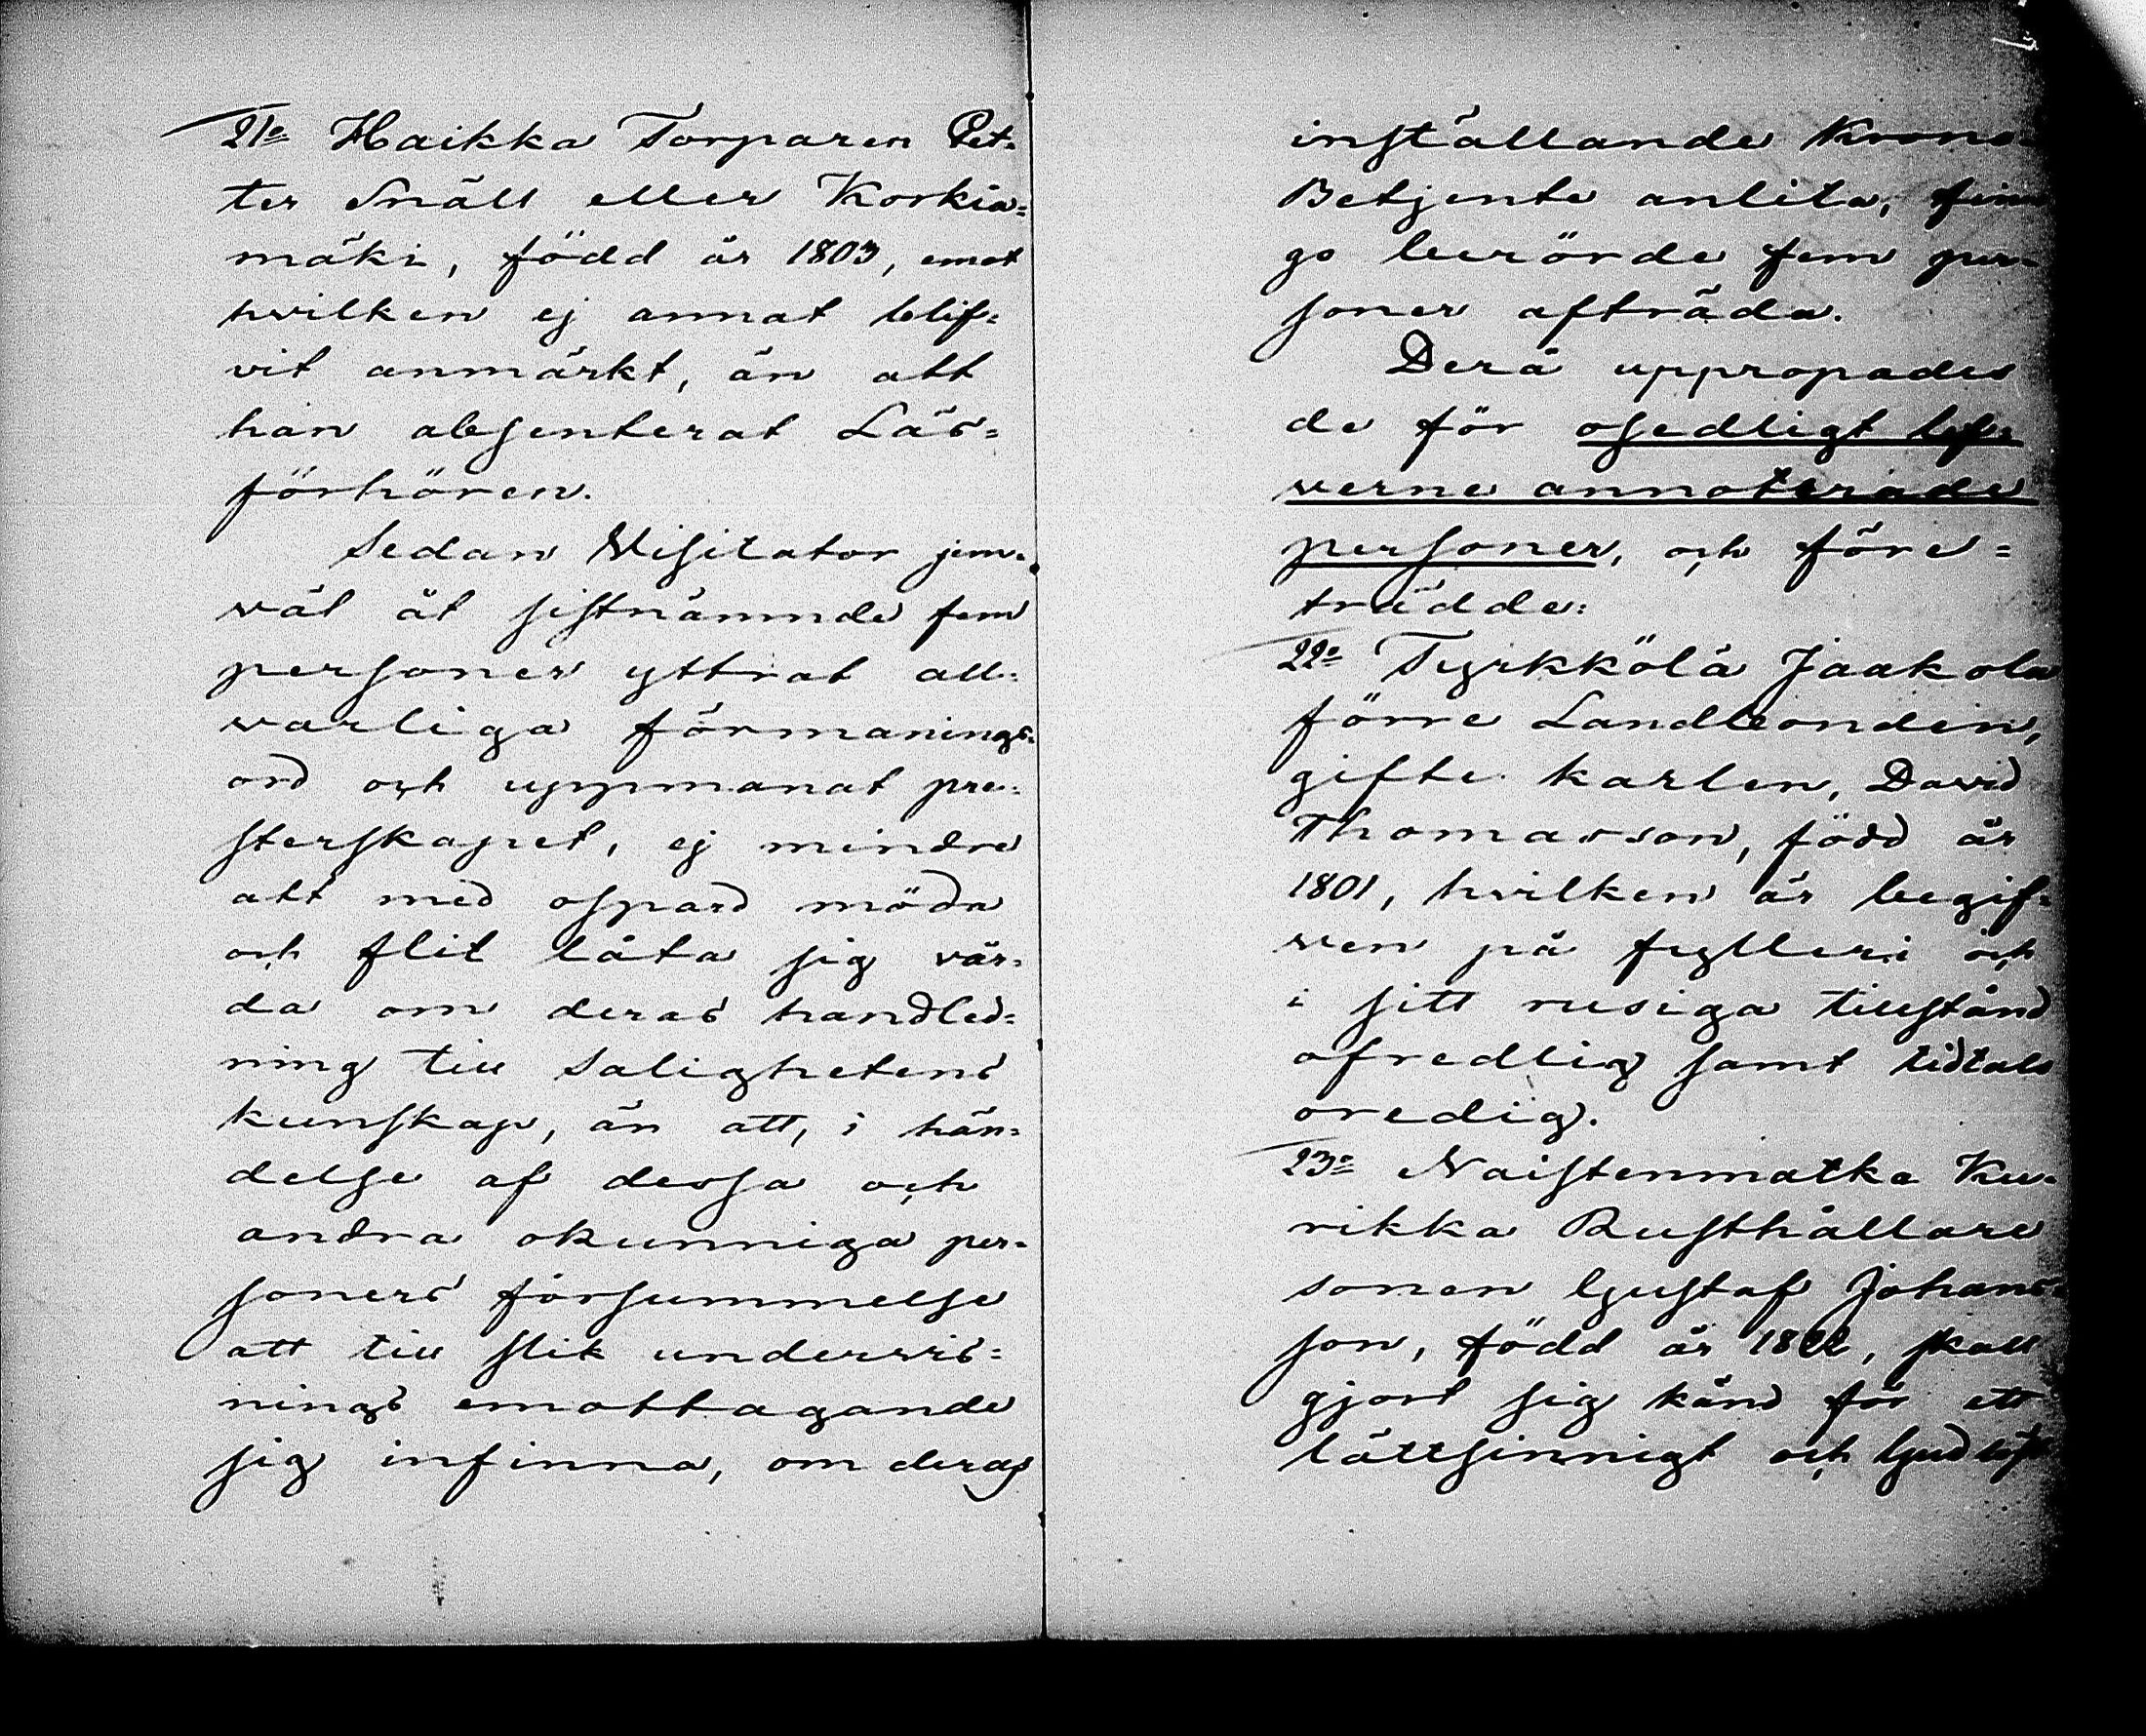 21o Haikka Torparen Pet-
ter Snäll eller Korkia-
mäki, född år 1803, emot
hvilken ej annat blif-
vit anmärkt, än att
han absenterat Läs-
förhören.
Sedan Visitator jem-
väl åt sistnämnde fem
personer yttrat all-
warliga förmanings-
ord och uppmanat pre-
sterskapet, ej mindre
att med ospard möda
och flit låta sig vår-
da om deras handled-
ning till salighetens
kunskap, än att, i hän-
delse af dessa och
andra okunniga per-
soners försummelse
att till slik underwis-
nings emottagande
sig infinna, om deras
inställande Krono-
Betjente anlita, fin-
go berörde fem per-
soner afträda.
Derå uppropades
de för osedligt lef-
verne annoterade
personer, och före-
trädde:
22o Tyrkkölä Jaakola
förre Landbonden,
gifte karlen, David
Thomasson, född år
1801, hvilken är begif-
wen på fylleri och
i sitt rusiga tillstånd
ofredlig samt tidtals
oredig.
23o Naistenmatka Ku-
rikka Rusthållare
sonen Gustaf Johans-
son, född år 1822, skall
gjort sig känd för ett
lättsinnigt och